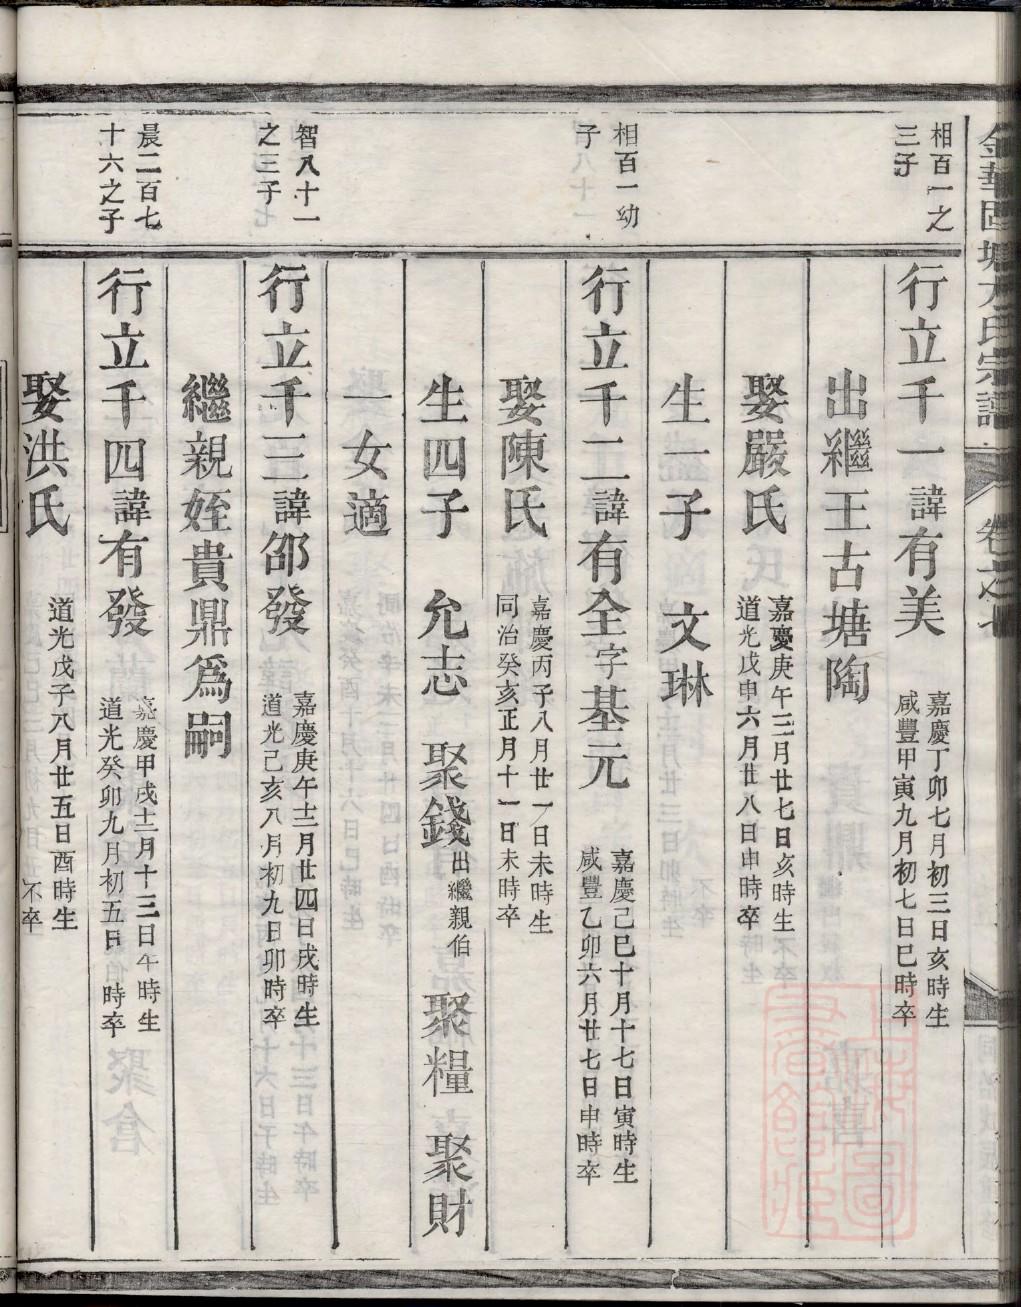 金華固塘方氏宗譜
卷之七
相百一之三子
行立千一諱有美 嘉慶丁卯七月初三日亥時生 咸豐甲寅九月初七日巳時卒
出繼王古塘陶
娶嚴氏 嘉慶庚午三月廿七日亥時生不卒 道光戊申六月廿八日申時卒
生一子 文琳
相百一幼子
行立千二諱有全字基元 嘉慶己巳十月十七日寅時生 咸豐乙卯六月廿七日申時卒
娶陳氏 嘉慶丙子八月廿一日未時生 同治癸亥正月十一日未時卒
生四子 允志 聚錢出繼親伯 聚糧 聚財
一女適
智八十一之三子
行立千三諱邵發 嘉慶庚午十二月廿四日戌時生 道光己亥八月初九日卯時卒
繼親姪貴鼎爲嗣
晨二百七十六之子
行立千四諱有發 嘉慶甲戌十二月十三日午時生 道光癸卯九月初五日時卒
娶洪氏 道光戊子八月廿五日酉時生 不卒